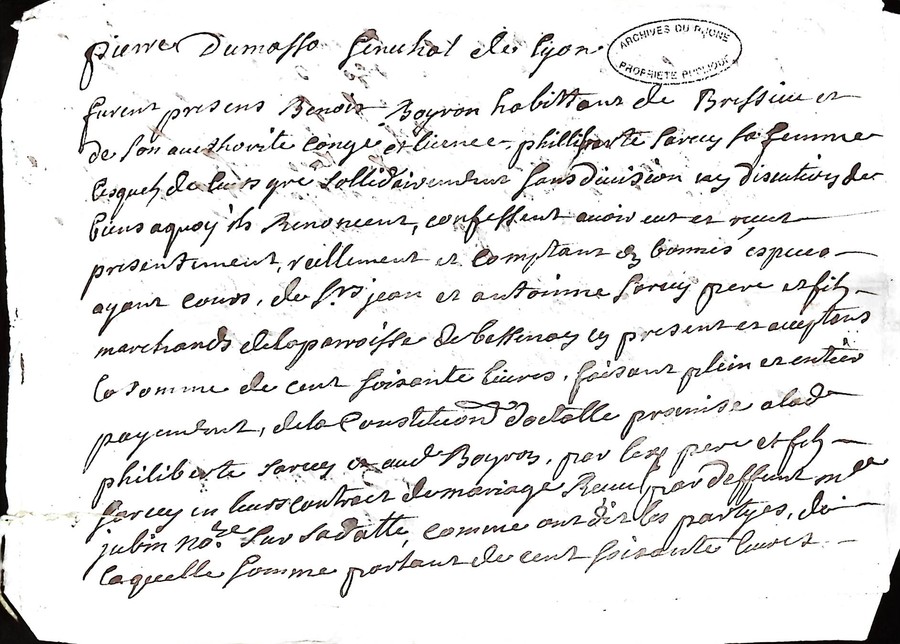 pierre Dumasso senechal de Lyon
ARCHIVES DU RHONE
PROPRIETE PUBLIQUE
furent presens Benoist Boyron habittant de Bressieu et
de son aucthorite conge et licence philliparte Sarcey sa femme
lesquelz de leurs gre sollidairement sans division ny discution de
biens a quoy ils Renoncent, confessent avoir eut et receut
presentement, reellement et comptant en bonnes especes
ayant cours, de Srs jean et antoinne Sarcey pere et filz
marchands de la parroisse de bessenay cy present et acceptans
la somme de cent soisante livres, faisant plein et entier
payement, de la Constitution dotalle promise a lade
philiberte Sarcey et aud Boyron, par lesd pere et filz
Sarcey en leurs contract de mariage Receu par deffunt me
jubin nore. sur sa datte, comme ont dit les partyes, de
laquelle somme portant de cent soisante livres